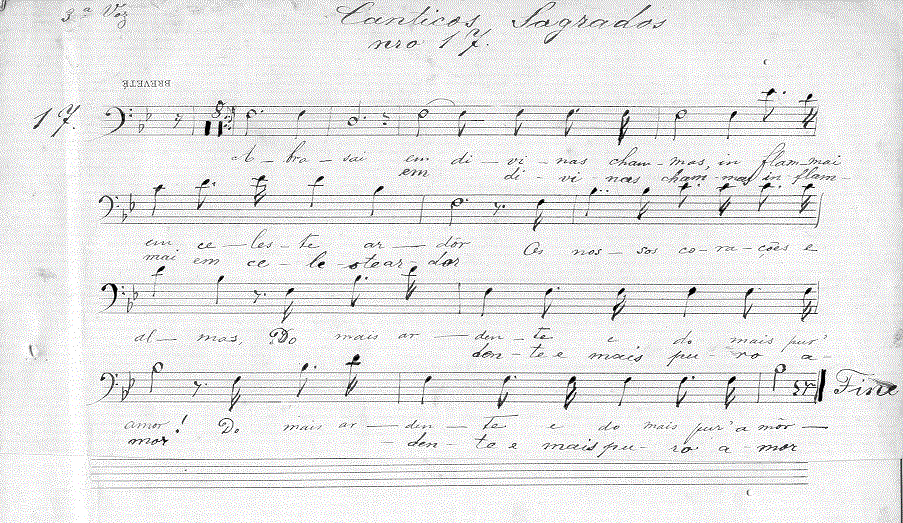 3ª Voz
Canticos Sagrados
nro 17.
BREVETÉ
17.
8
A – bra – sai em di – vi – nas cham – mas, in flam – mai
em di – vi – nas cham – mas in flam –
em ce – les – te ar – dôr Os nos – sos co – ra – ções e
mai em ce – le – ste ar – dor
al – mas, Do mais ar – den – te e do mais pur'
den – te e mais pu – ro a –
amor! Do mais ar – den – te e do mais pur' a môr –
mor – den – te e mais pu – ro a – mor
Fine